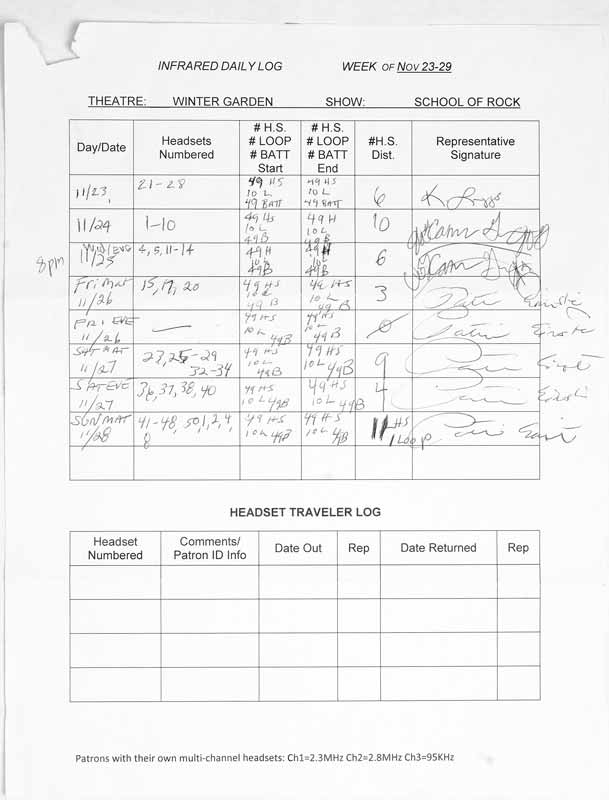 INFRARED DAILY LOG WEEK OF NOV 23-29
THEATRE: WINTER GARDEN SHOW: SCHOOL OF ROCK
Day/Date
Headsets Numbered
# H.S. # LOOP # BATT Start
# H.S. # LOOP # BATT End
#H.S. Dist.
Representative Signature
11/23 21-28 49 HS 10 L 49 BATT 49 HS 10 L 49 BATT 6
11/24 1-10 49 HS 10 L 49B 49 H 10 L 49B 10
8pm 11/25 4, 5, 11-14 49H 10 L 49B 49H 10 L 49B 6
FRI MAT 11/26 15, 17, 20 49 HS 10 L 49B 49 HS 10 L 49B 3
FRI EVE 11/26 — 49 HS 10 L 49B 49HS 10 L 49B 0
SAT MAT 11/27 23, 25-29 32-34 49HS 10 L 49B 49HS 10 L 49B 9
SAT EVE 11/27 36, 37, 38, 40 49HS 10 L 49B 49HS 10 L 49B 4
SUN MAT 11/28 41-48, 50, 1, 2, 4, 8 49 HS 10 L 49B 49 HS 10 L 49B 11 HS 1 LOOP
HEADSET TRAVELER LOG
Headset Numbered
Comments/ Patron ID Info
Date Out
Rep
Date Returned
Rep
Patrons with their own multi-channel headsets: Ch1=2.3MHz Ch2=2.8MHz Ch3=95KHz